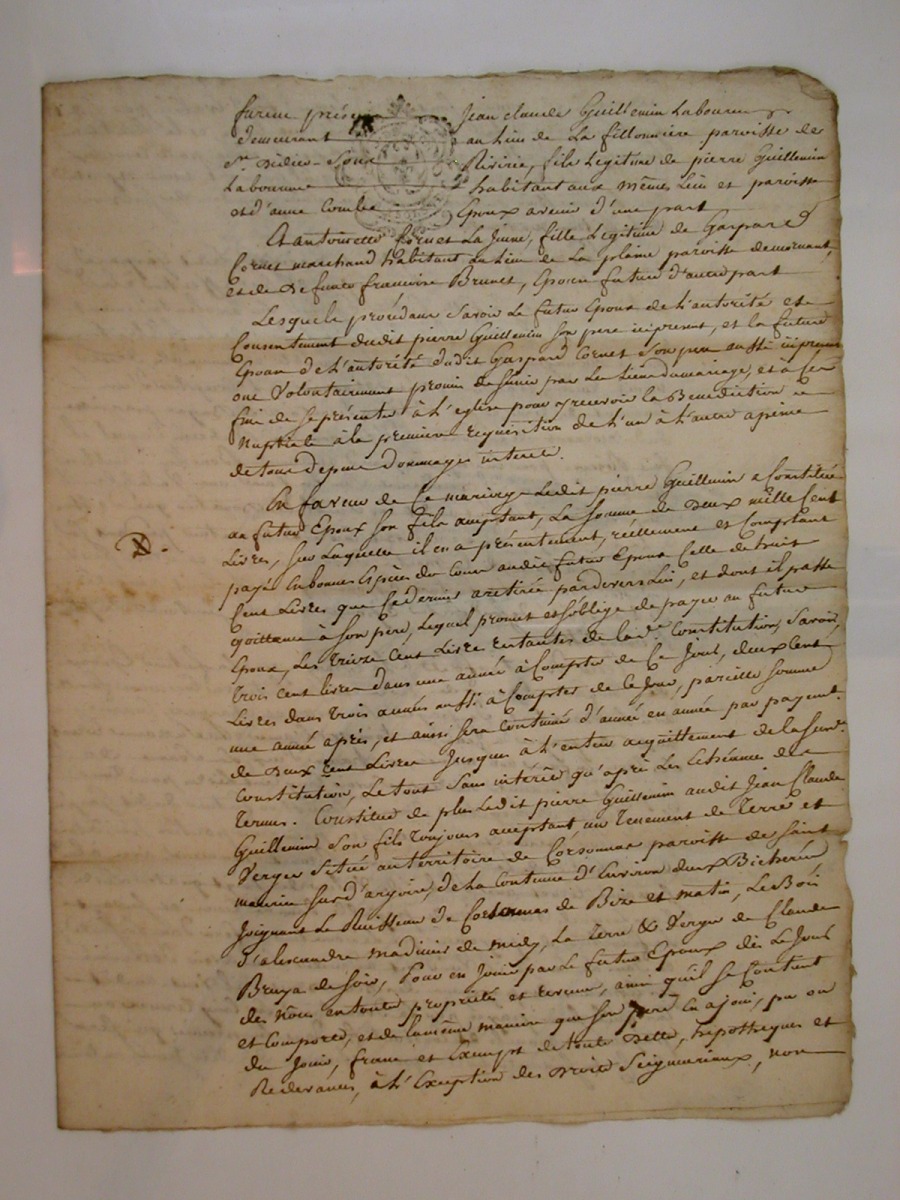 furent présents Jean claude Guillemin Laboureur
demeurant au Lieu de La fillonniere paroisse de
St. Didier-Sous Rivirie, fils Legitime de pierre Guillemin
Laboureur habitant aux mêmes Lieu et paroisse
et d'anne Combe Epoux avenir d'une part
Et antoinette Cornet La Jeune, fille Legitime de Gaspard
Cornet marchand habitant au Lieu de La plaine paroisse de mornant,
et de Defunte francoise Brunet, Epouse future d'autre part
Lesquels procédans Savoir Le futur Epoux de L'autorité et
Consentement dudit pierre Guillemin Son pere icy present, et la future
Epouse de L'autorité dudit Gaspard Cornet Son pere aussi icy present
ont Volontairement promis de S'unir par Les Liens du mariage, et à Ces
fins de Se présenter à L'eglise pour y recevoir La Benediction
Nuptiale à la premiere requisition de L'un à L'autre apeine
de tous depens dommages interets.
En faveur de Ce mariage Ledit pierre Guillemin a Constitué
au futur Epoux Son fils acceptant, La Somme de Deux mille Cent
Livres, Sur Laquelle il en a présentement, réellement et Comptant
payé en bonnes Espèces du Cours audit futur Epoux Celle de huit
Cent Livres que Ce dernier a retirée pardevers Lui, et dont il passe
quittance à Son père, Lequel promet et S'oblige de payer au futur
Epoux, Les treize Cent Livres restantes de lad. Constitution, Savoir,
trois Cent livres dans une année à Compter de Ce Jour, deux Cent
Livres dans trois années aussi à Compter de Ce Jour, pareille Somme
une année après, et ainsi Sera Continué d'année en année par payement
de Deux Cent Livres Jusques à L'entier acquittement de la Susd.
Constitution, Le tout Sans intérêts qu'après Les Echéances des
termes. Constitue de plus Ledit pierre Guillemin audit Jean Claude
Guillemin Son fils toujours acceptant un tenement de terre et
Verger Situé au territoire de Corsonnas paroisse de Saint
maurice Sur d'argoire, de La Contenue d'Environ deux Bicherées
Joignant Le Ruisseau de Corsonnas de Bize et matin, Le Bois
d'alexandre madinier de midy, La terre & Verger de Claude
Bruya de Soir, Pour en Jouir par Le futur Epoux dès Le Jour
des Nôces en toute propriété et revenu, ainsi qu'il Se Contient
et Comporte, et de La même maniere que Son père en a joui, pu ou
du Jouir, franc et Exempt de toute Dette, hypotheques et
Redevances, à L'Exception des Droits Seigneuriaux, non